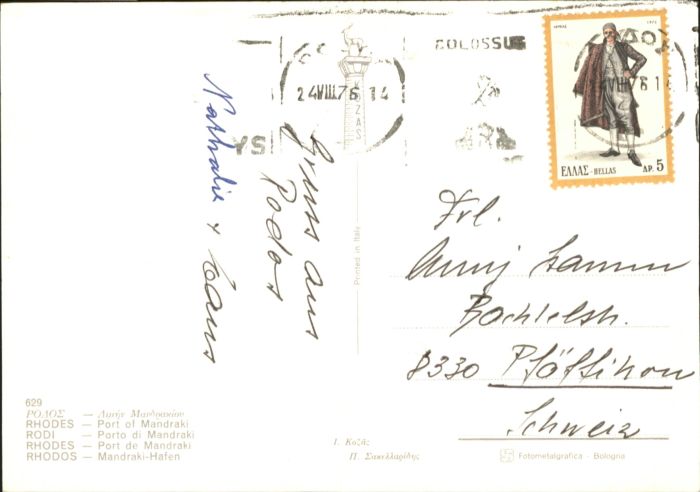 COLOSSUS
24 VIII.76 14
24 VIII.76 14
YS
KOZAS
1973
ΕΛΛΑΣ - HELLAS ΔΡ. 5
Gruss aus
Rodos
Nathalie +
Printed in Italy
Frl.
Anny
Bachtelstr.
8330 Pfäffikon
Schweiz
629
ΡΟΔΟΣ — Λιμήν Μανδρακίου
RHODES — Port of Mandraki
RODI — Porto di Mandraki
RHODES — Port de Mandraki
RHODOS — Mandraki-Hafen
Ι. Κοζᾶς
Π. Σακελλαρίδης
Fotometalgrafica - Bologna